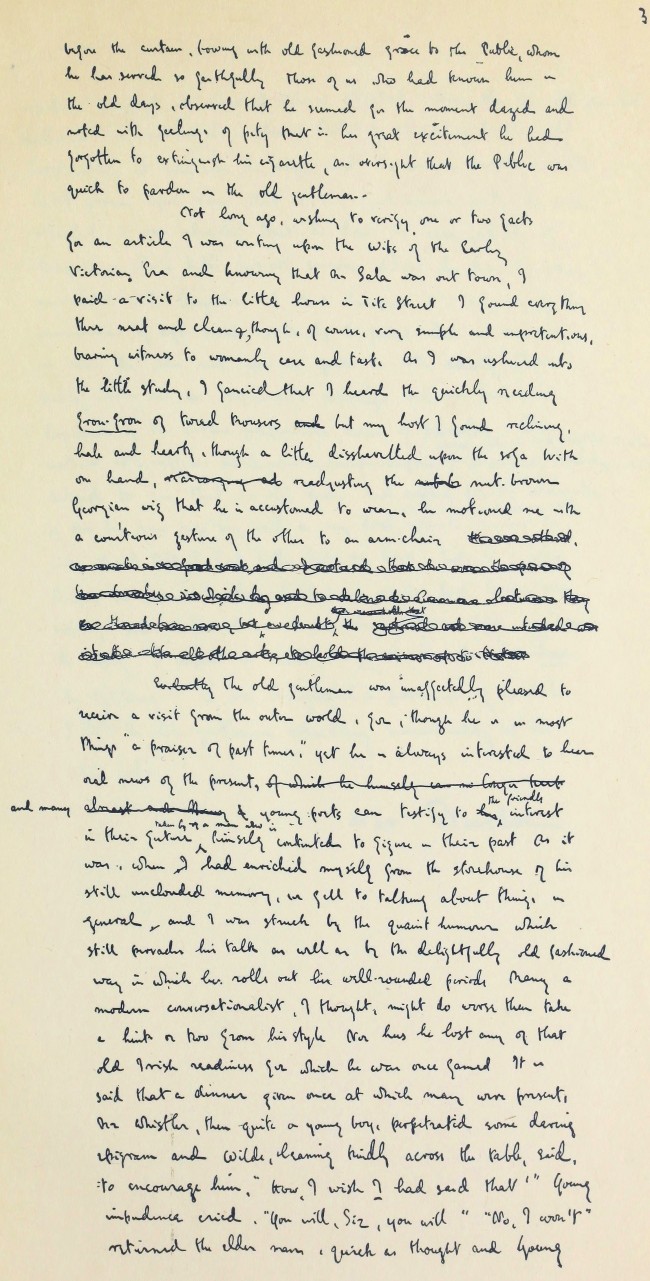 3
before the curtain, bowing with old fashioned grace to the Public, whom
he has served so faithfully Those of us who had known him in
the old days, observed that he seemed for the moment dazed and
noted with feelings of pity that in his great excitement he had
forgotten to extinguish his cigarette, an oversight that the Public was
quick to pardon in the old gentleman.
Not long ago, wishing to verify one or two facts
for an article I was writing upon the Wits of the Early
Victorian Era and knowing that Mr Sala was out town, I
paid a visit to the little house in Tite Street I found everything
there neat and clean, though, of course, very simple and unpretentious,
bearing witness to womanly care and taste. As I was ushered into
the little study, I fancied that I heard the quickly receding
frou-frou of tweed trousers and but my host I found reclining,
hale and hearty, though a little disshevelled upon the sofa With
one hand, readjusting the nut-brown
Georgian wig that he is accustomed to wear, he motioned me with
a courteous gesture of the other to an arm-chair
the old gentleman was unaffectedly pleased to
receive a visit from the outer world, for, though he is in most
things "a praiser of past times," yet he is always interested to hear
oral news of the present, of which he himself can no longer
and many almost and young poets can testify to the friendly interest
in their future himself contented to figure in their past As it
was, when I had enriched myself from the storehouse of his
still unclouded memory, we fell to talking about things in
general, and I was struck by the quaint humour which
still pervades his talk as well as by the delightfully old fashioned
way in which he rolls out his well-rounded periods Many a
modern conversationalist, I thought, might do worse than take
a hint or two from his style Nor has he lost any of that
old Irish readiness for which he was once famed It is
said that a dinner given once at which many were present,
Mr Whistler, then quite a young boy, perpetrated some daring
epigram and Wilde, leaning kindly across the table, said,
to encourage him, "How, I wish I had said that!" Young
impudence cried, "You will, Sir, you will" "No, I won't"
returned the elder man, quick as thought and Young